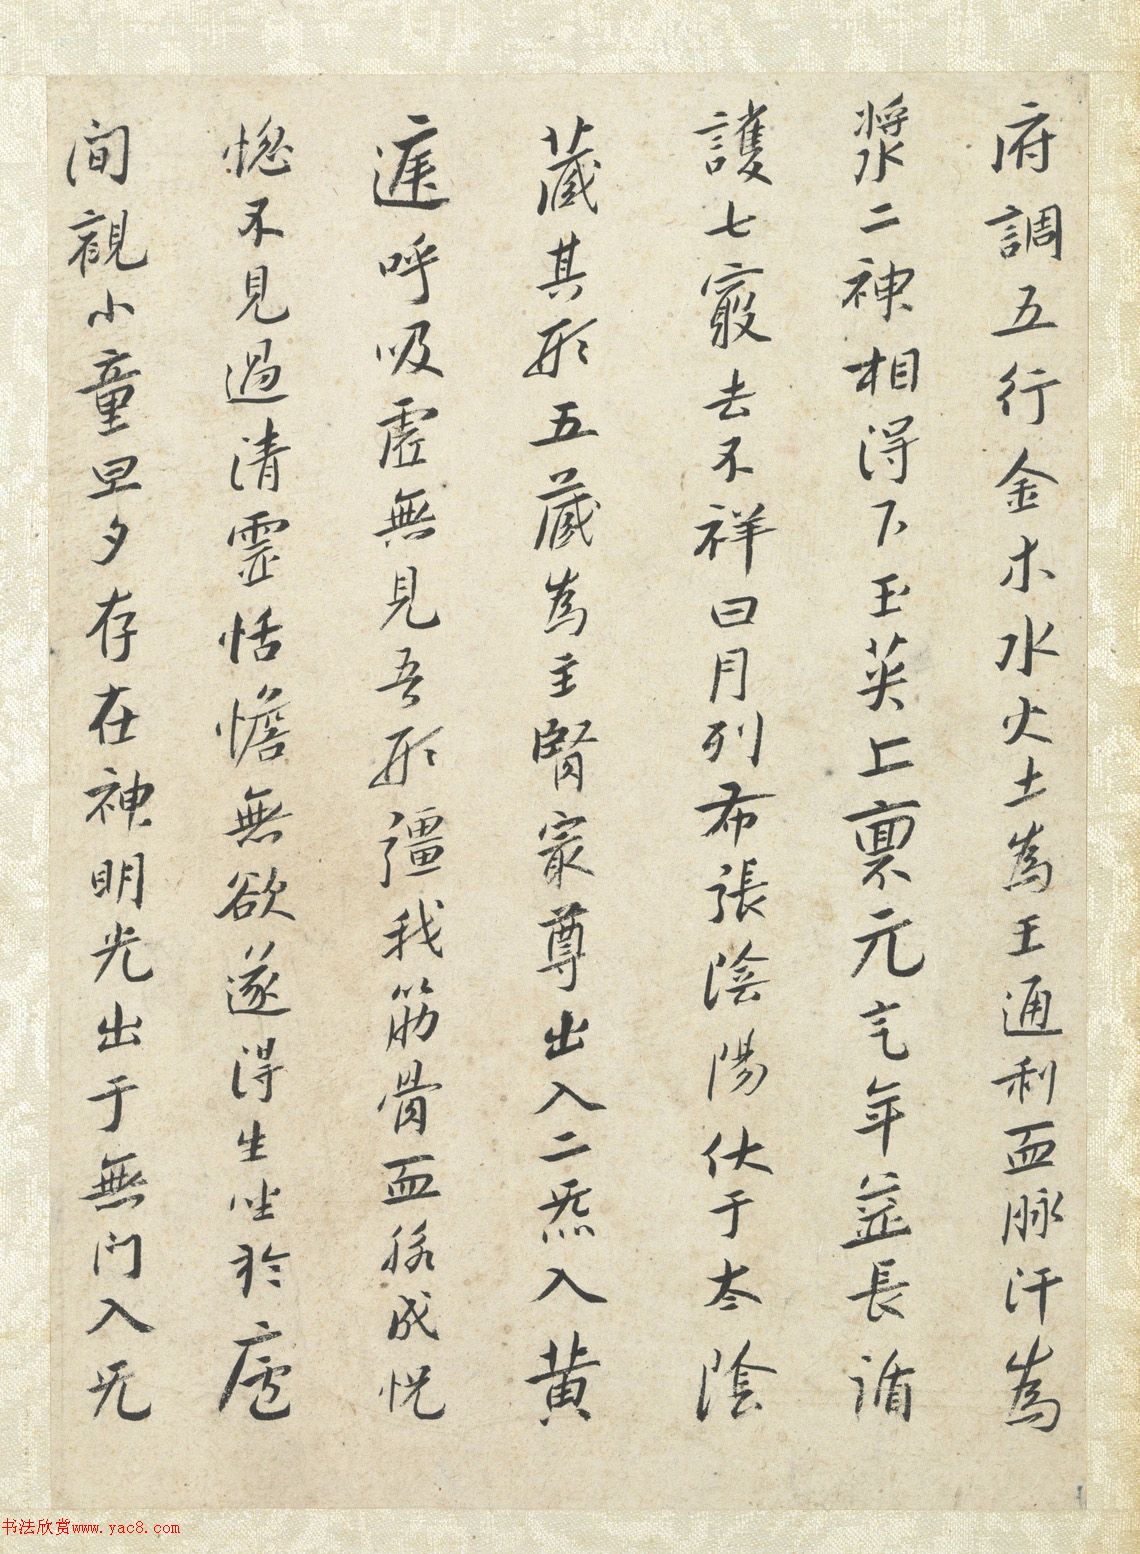 府調五行金木水火土為王通利血脉汗為
漿二神相得下玉英上禀元气年益長循
護七竅去不祥日月列布張陰陽伏于太陰
藏其形五藏為主腎冣尊出入二炁入黄
庭呼吸虛無見吾形彊我筋骨血脉成恍
惚不見過清靈恬憺無欲遂得生坐於廬
間觀小童旦夕存在神明光出于無門入无
书法欣赏www.yac8.com